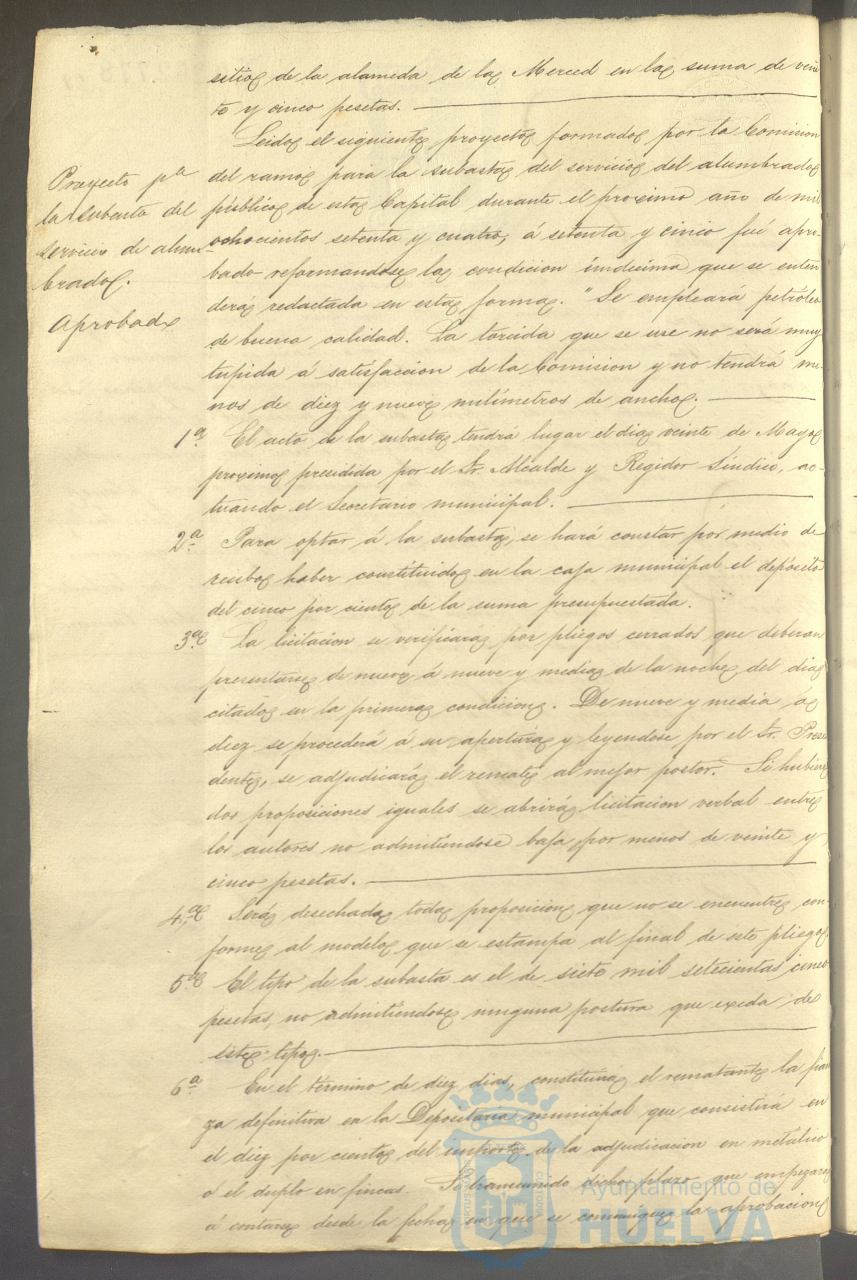 sitio de la alameda de la Merced en la suma de vein
te y cinco pesetas.
Leido el siguiente proyecto formado por la Comision
del ramo para la subasta del servicio del alumbrado
público de esta Capital durante el proximo año de mil
ochocientos setenta y cuatro, á setenta y cinco fué apro-
bado reformandose la condicion undécima que se enten
derá redactada en esta forma. "Se empleará petróleo
de buena calidad. La torcida que se use no será muy
tupida á satisfaccion de la Comision y no tendrá me-
nos de diez y nueve milímetros de ancho.
Proyecto pa
la subasta del
servicio de alum-
brado.
Aprobado
1a El acto de la subasta tendrá lugar el dia veinte de Mayo
proximo presidida por el Sr. Alcalde y Regidor Síndico, ac-
tuando el Secretario municipal.
2a Para optar á la subasta, se hará constar por medio de
recibo haber constituido en la caja municipal el depósito
del cinco por ciento de la suma presupuestada.
3a La licitacion se verificará por pliegos cerrados que deberan
presentarse de nueve á nueve y media de la noche del dia
citado en la primera condicion. De nueve y media á
diez se procederá á su apertura y leyendose por el Sr. Presi
dente, se adjudicará el remate al mejor postor. Si hubiere
dos proposiciones iguales se abrirá licitacion verbal entre
los autores no admitiéndose baja por menos de veinte y
cinco pesetas.
4a Será desechada toda proposicion que no se encuentre con-
forme al modelo que se estampa al final de este pliego.
5a El tipo de la subasta es el de siete mil setecientas cinco
pesetas, no admitiéndose ninguna postura que exceda de
este tipo.
6a En el término de diez dias, constituirá el rematante la fian
za definitiva en la Depositaria municipal que consistirá en
el diez por ciento del importe de la adjudicacion en metalico
ó el duplo en fincas. dicho plazo que empezará
á contarse desde la fecha en que se comunique la aprobacion
Ayuntamiento de
HUELVA